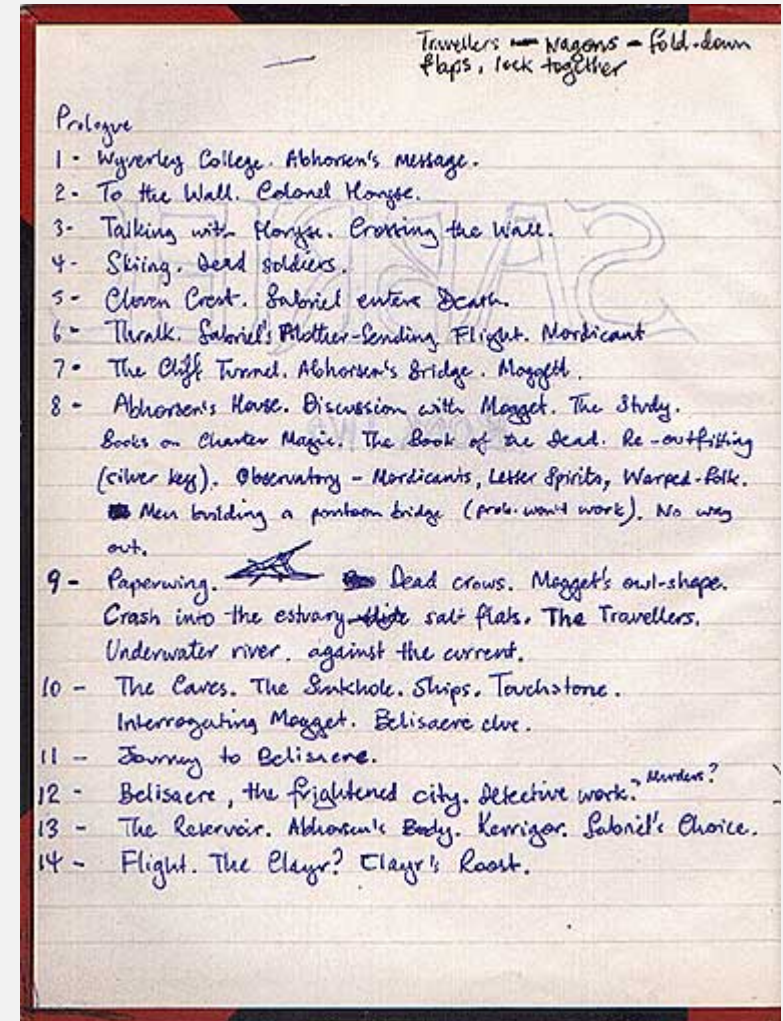 Travellers — Wagons - fold-down
flaps, lock together
Prologue
1 - Wyverley College. Abhorsen's message.
2 - To the Wall. Colonel Horyse.
3 - Talking with Horyse. Crossing the Wall.
4 - Skiing. Dead soldiers.
5 - Cloven Crest. Sabriel enters Death.
6 - Thralk. Sabriel's Mother-Sending. Flight. Mordicant
7 - The Cliff Tunnel. Abhorsen's Bridge. Moggett.
8 - Abhorsen's House. Discussion with Mogget. The Study.
Books on Charter Magic. The Book of the Dead. Re-outfitting
(silver key). Observatory - Mordicants, Lesser Spirits, Warped-folk.
Men building a pontoon bridge (prob. won't work). No way
out.
9 - Paperwing. Dead crows. Mogget's owl-shape.
Crash into the estuary salt flats. The Travellers.
Underwater river. against the current.
10 - The Caves. The Sinkhole. Ships. Touchstone.
Interrogating Mogget. Belisaere clue.
11 - Journey to Belisaere.
12 - Belisaere, the frightened city. Detective work. - Murders?
13 - The Reservoir. Abhorsen's Body. Kerrigor. Sabriel's Choice.
14 - Flight. The Clayr? Clayr's Roost.
SABRIEL
BOOK TWO